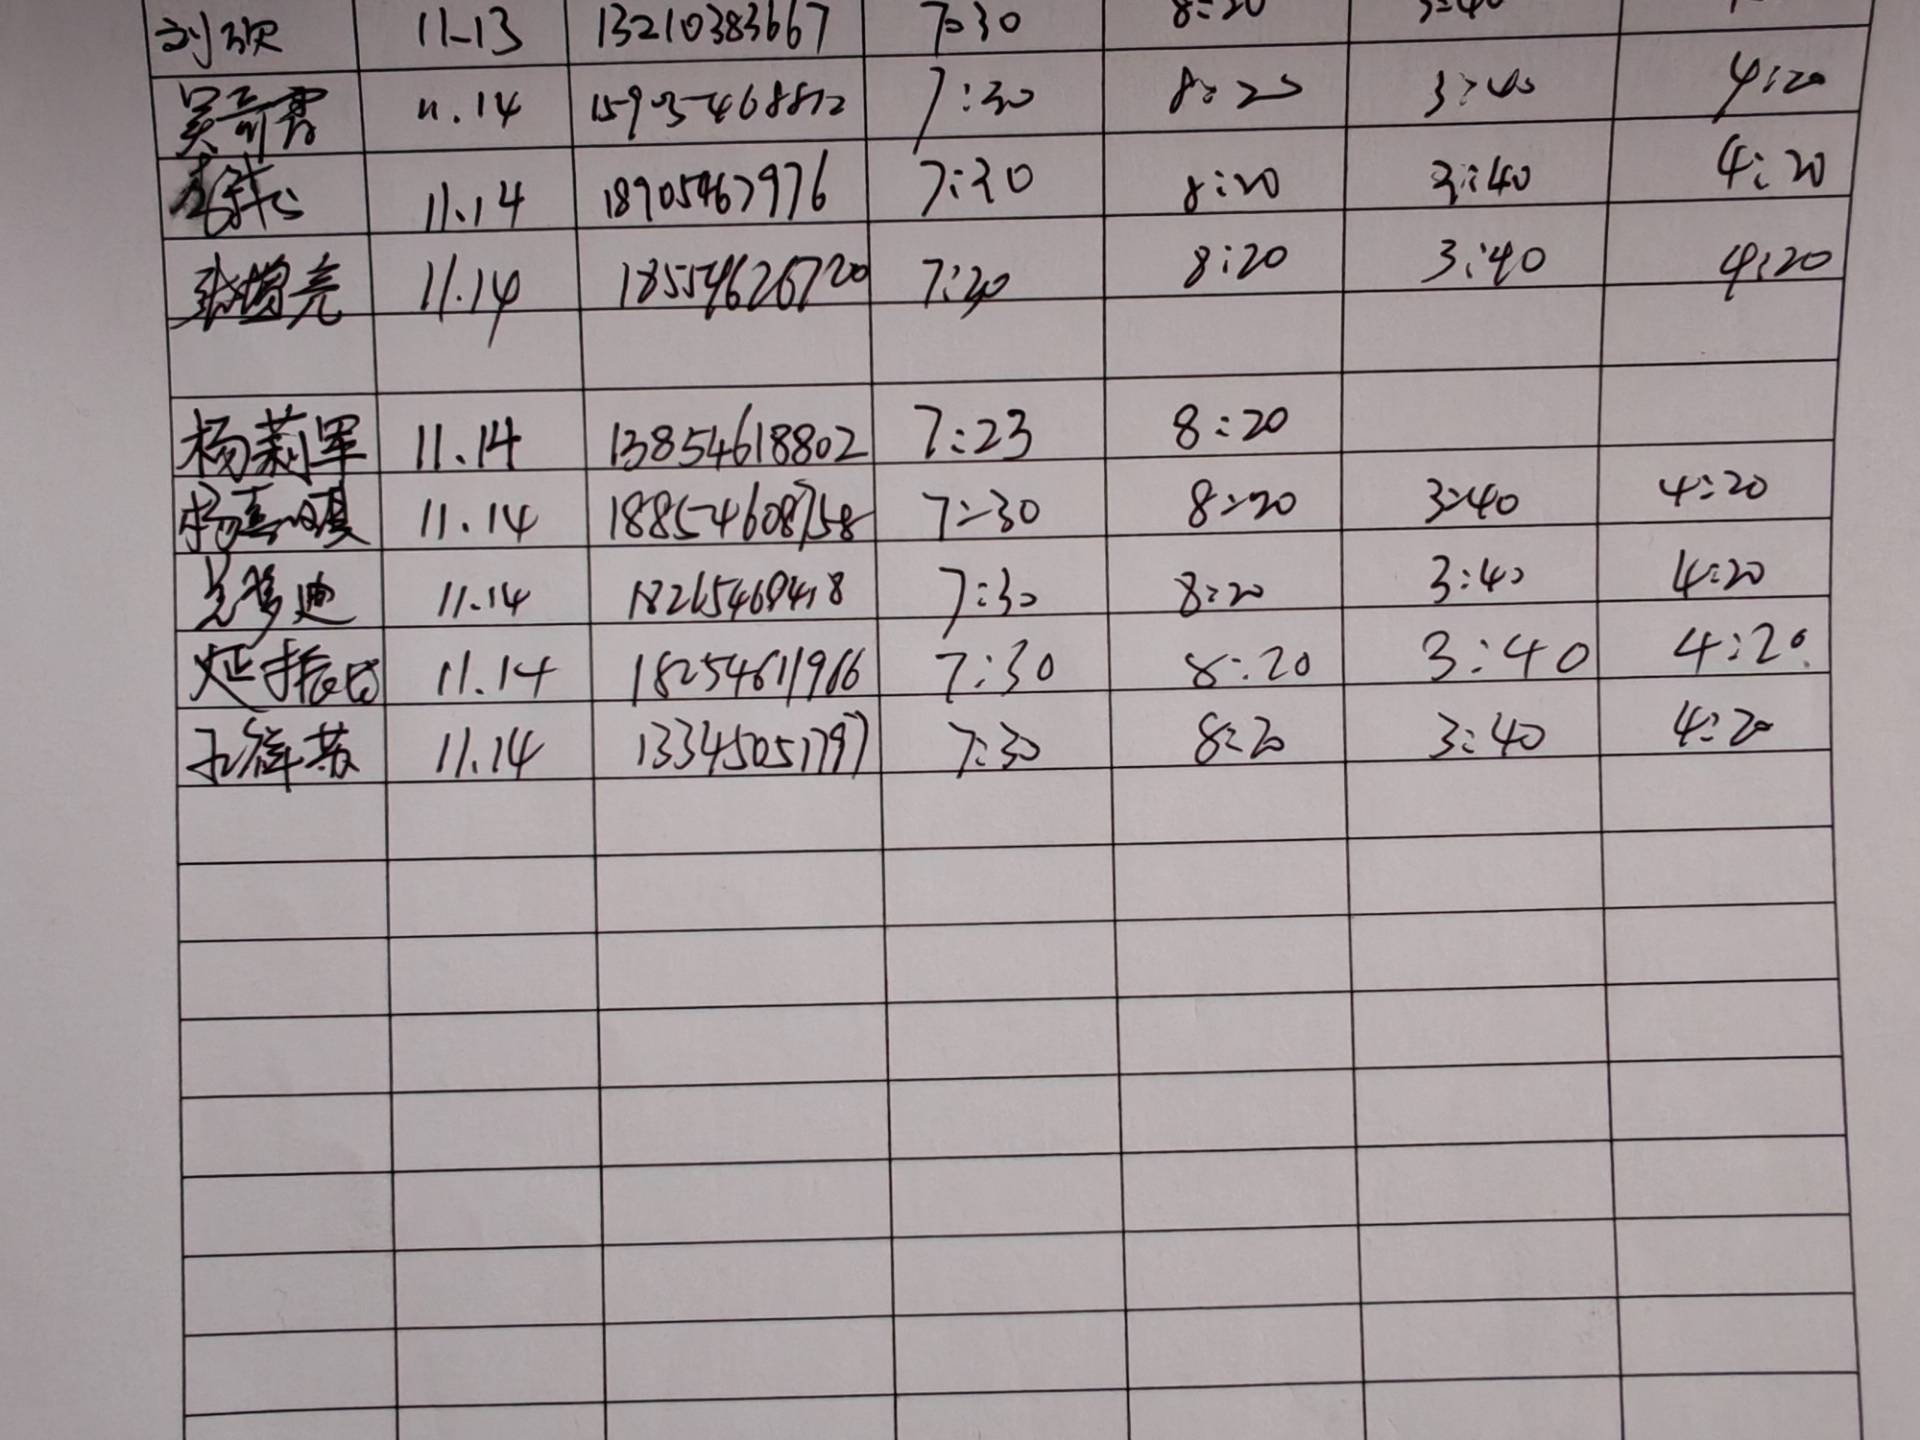 刘欢 11-13 13210383667 7:30 8:20 3:40
11.14 7:30 8:20 3:40 4:20
11.14 18905467976 7:30 8:20 3:40 4:20
张增亮 11.14 18554626720 7:30 8:20 3:40 4:20
杨莉军 11.14 13854618802 7:23 8:20
11.14 18854608758 7:30 8:20 3:40 4:20
11.14 7:30 8:20 3:40 4:20
延振国 11.14 18254611966 7:30 8:20 3:40 4:20
11.14 13345051797 7:30 8:20 3:40 4:20